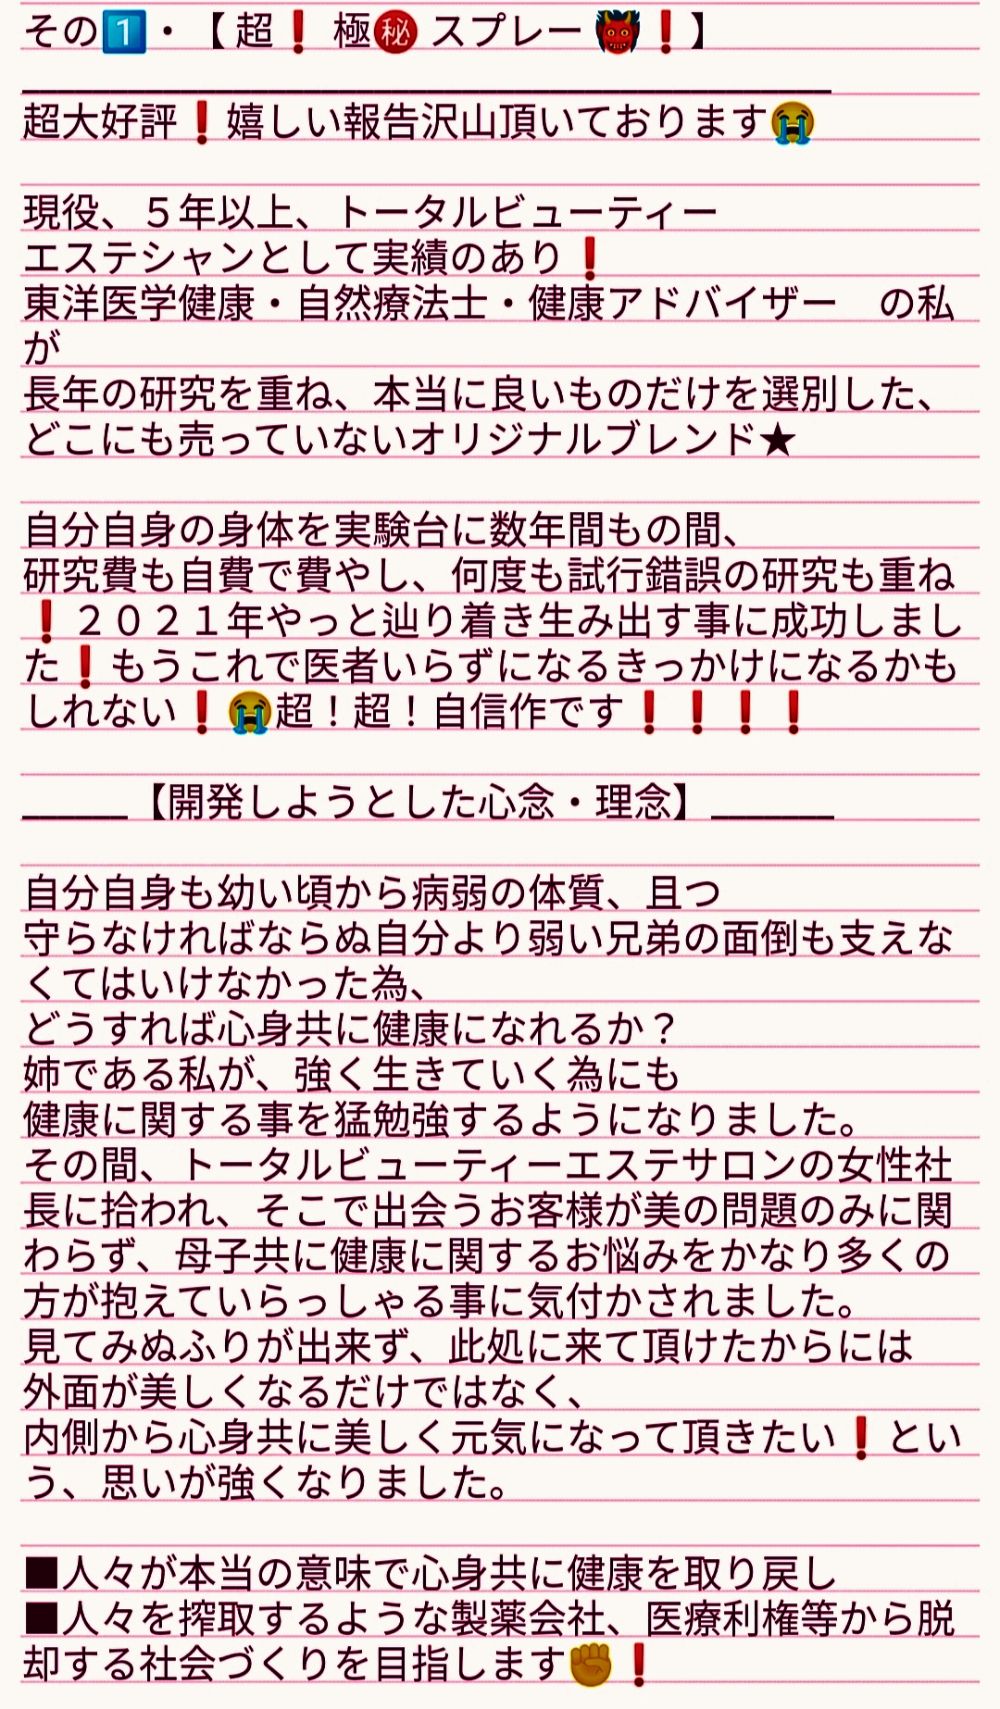 その1️⃣・【 超❗ 極㊙ スプレー 👹❗】
超大好評❗嬉しい報告沢山頂いております😭
現役、５年以上、トータルビューティー
エステシャンとして実績のあり❗
東洋医学健康・自然療法士・健康アドバイザー　の私
が
長年の研究を重ね、本当に良いものだけを選別した、
どこにも売っていないオリジナルブレンド★
自分自身の身体を実験台に数年間もの間、
研究費も自費で費やし、何度も試行錯誤の研究も重ね
❗２０２１年やっと辿り着き生み出す事に成功しまし
た❗もうこれで医者いらずになるきっかけになるかも
しれない❗😭超！超！自信作です❗❗❗❗
______【開発しようとした心念・理念】_______
自分自身も幼い頃から病弱の体質、且つ
守らなければならぬ自分より弱い兄弟の面倒も支えな
くてはいけなかった為、
どうすれば心身共に健康になれるか？
姉である私が、強く生きていく為にも
健康に関する事を猛勉強するようになりました。
その間、トータルビューティーエステサロンの女性社
長に拾われ、そこで出会うお客様が美の問題のみに関
わらず、母子共に健康に関するお悩みをかなり多くの
方が抱えていらっしゃる事に気付かされました。
見てみぬふりが出来ず、此処に来て頂けたからには
外面が美しくなるだけではなく、
内側から心身共に美しく元気になって頂きたい❗とい
う、思いが強くなりました。
■人々が本当の意味で心身共に健康を取り戻し
■人々を搾取するような製薬会社、医療利権等から脱
却する社会づくりを目指します✊❗